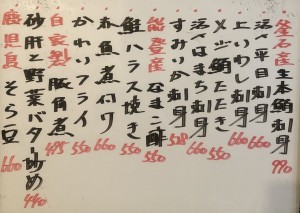 釜石産 生本鮪刺身 990
活〆平目刺身 660
上いわし刺身 660
メジ鮪たたき 550
活〆はまち刺身 660
すみいか刺身 528
能登産 なまこ酢 550
鮭ハラス焼き 550
赤魚煮付け 660
かわりフライ 550
自家製 豚角煮 495
砂肝と野菜バター炒め 440
鹿児島 そら豆 660